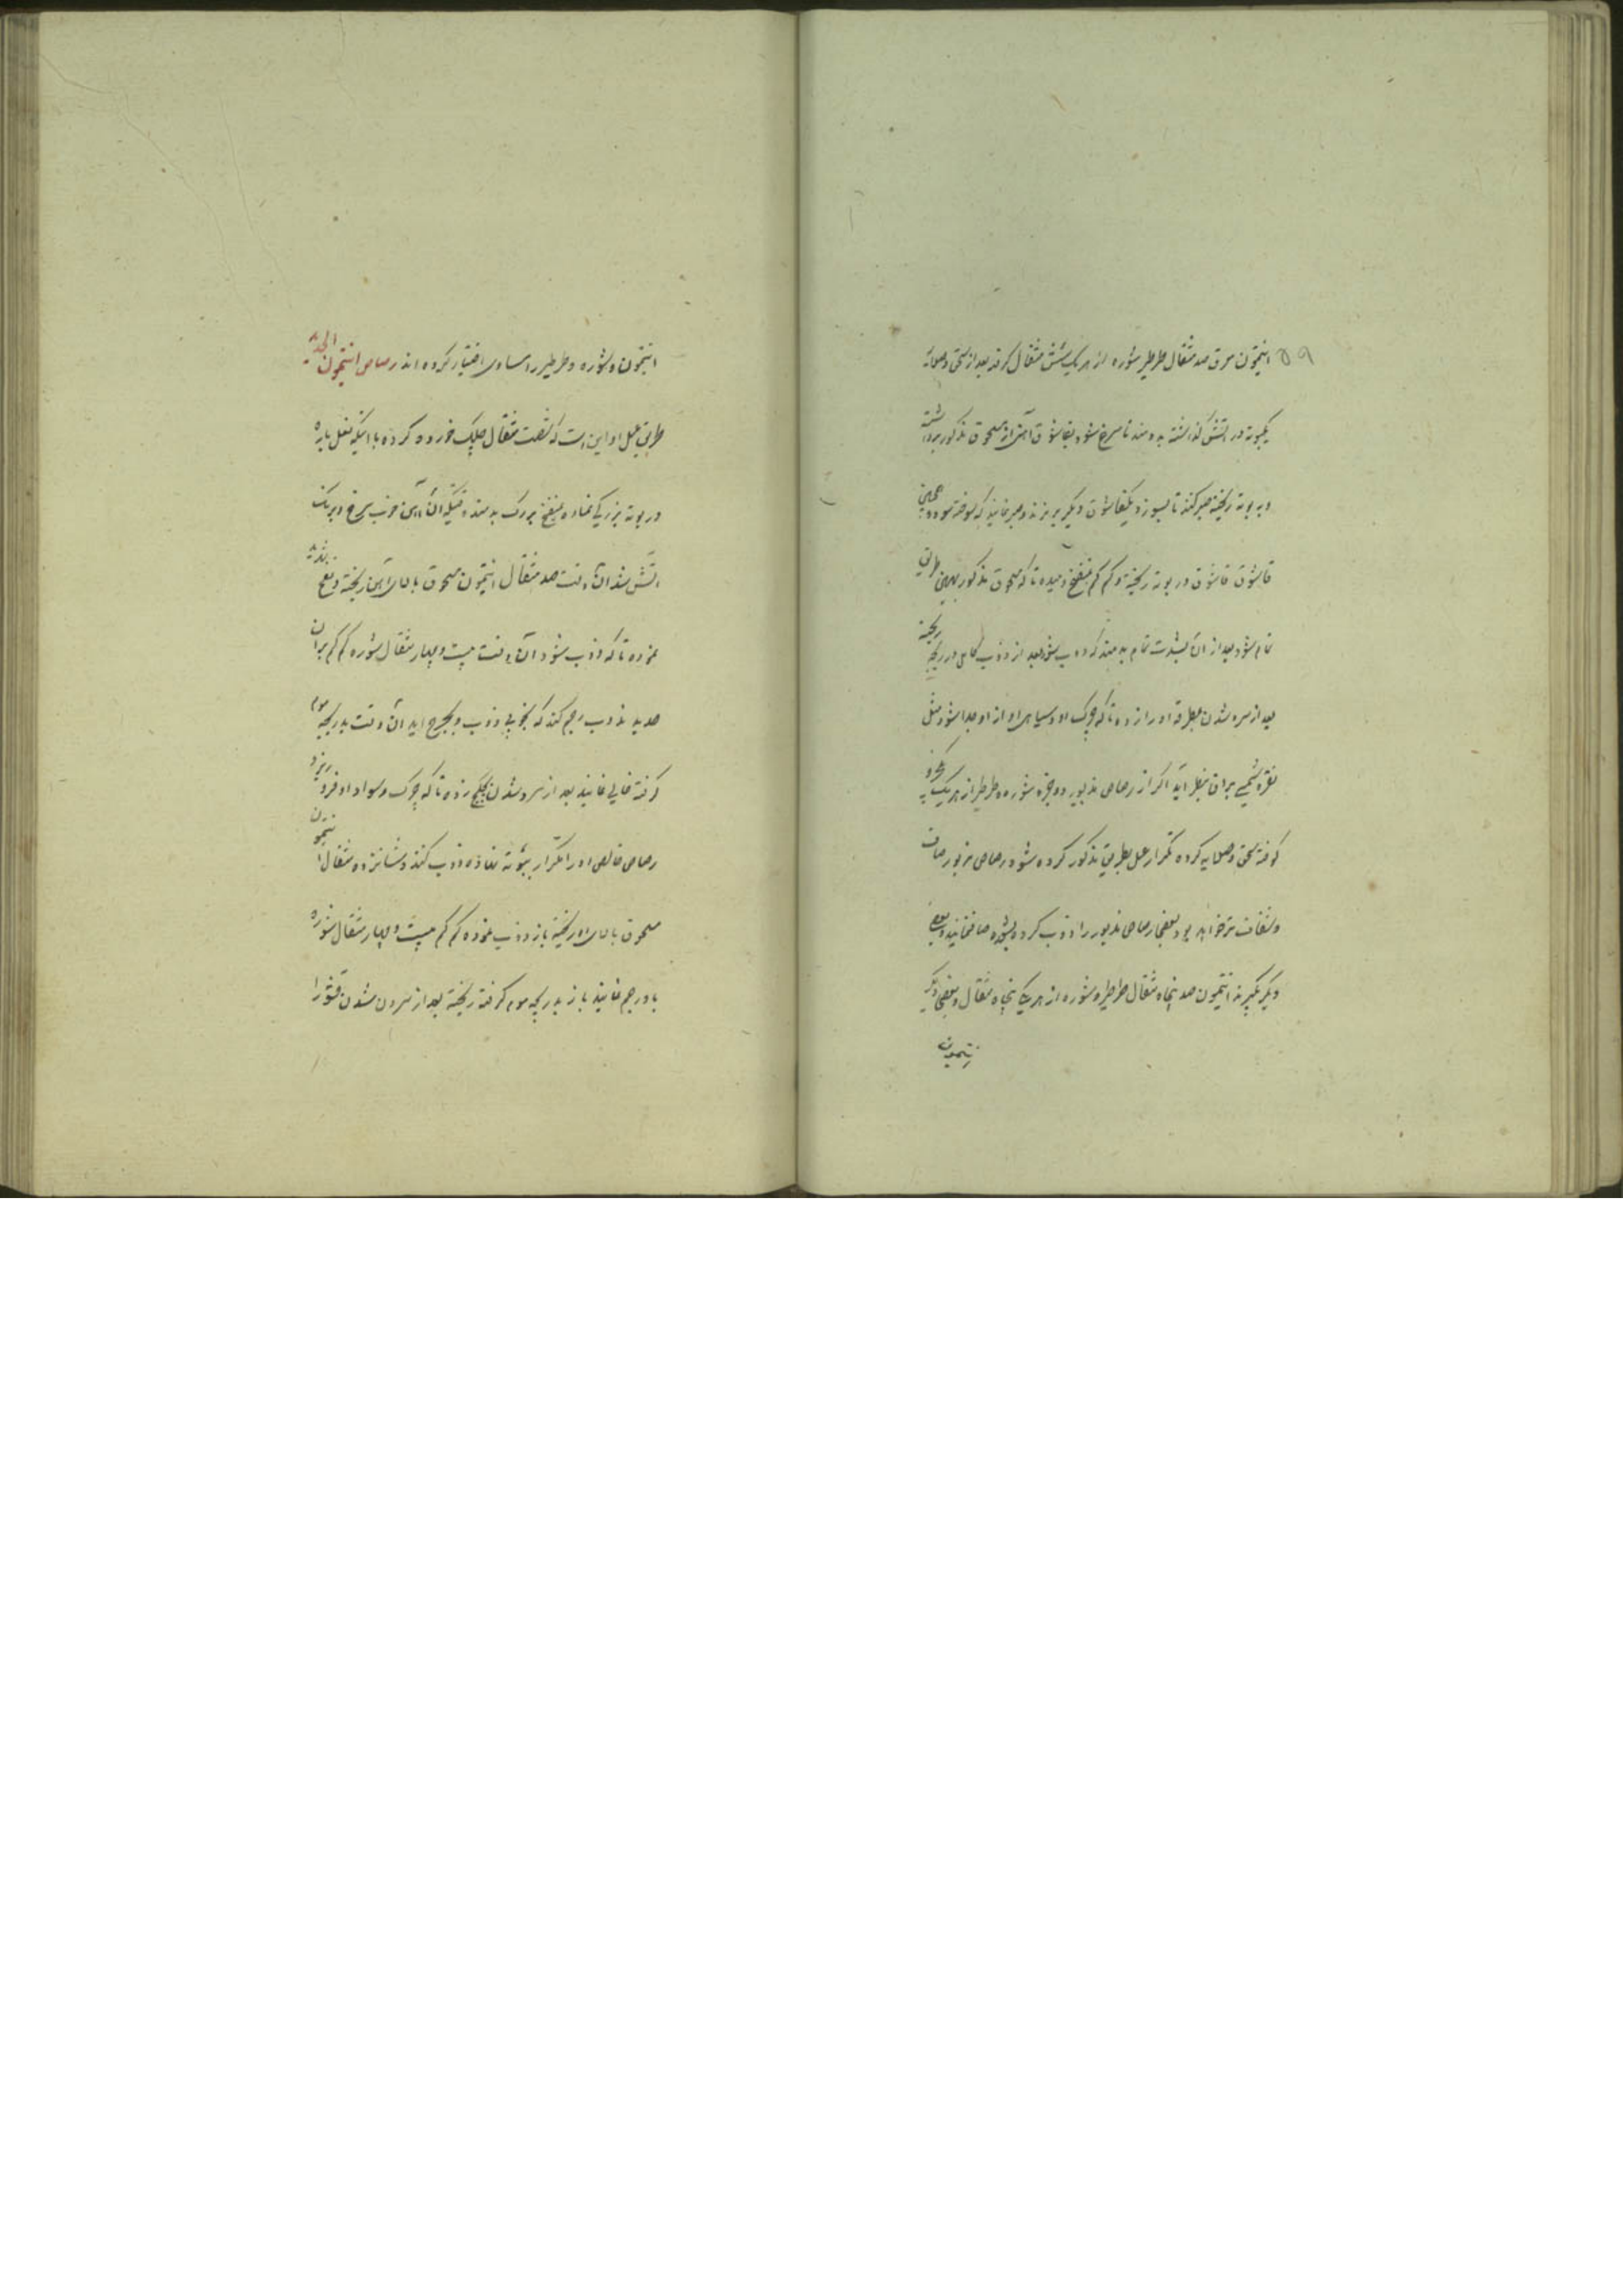 ۵۹
انتیمون محرق صد مثقال طرطیر شوره از هر یک شش مثقال گرفته بعد از سحق و صلایه
یکبوته در آتش گذاشته بدمند تا سرخ شود بقاشوق آهن از مسحوق مذکور برداشته
و به بوته ریخته صبر کنند تا بسوزد یکقاشوق دیگر بریزند و صبر نمایند که سوخته شود و همچنین
قاشوق قاشوق در بوته ریخته و کم کم بنفخ دمیده تا که مسحوق مذکور بهمین طریق
تمام شود بعد از آن بشدت تمام بدمند که ذوب شود بعد از ذوب کامل در ریجه ریخته
بعد از سرد شدن مطرقه او را زده تا که چرک او و سیاهی او از او جدا شود مثل
نقره شمسی براق بنظر آید اگر از رصاص مذبور دو جزء شوره و طرطیر از هر یک یکجزو
کوفته سحق و صلایه کرده تکرار عمل بطریق مذکور کرده شود رصاص مزبور صاف
و شفاف تر خواهد بود بعضی رصاص مذبور را ذوب کرده بشوره صاف نمایند و بعضی
دیگر بگیرند انتیمون صد پنجاه مثقال طرطیر و شوره از هر یک پنجاه مثقال و بعضی دیگر
انتیمون
انتیمون و شوره و طرطیر را مساوی اختیار کرده اند رصاص انتیمون الحدید
طریق عمل او این است که شصت مثقال چلیک خورده کرده یا اینکه نعل پاره
در بوته بزرگی نهاده بنفخ بزرگ بدمند وقتیکه آن آهن خوب سرخ و برنک
آتش شد آن وقت صد مثقال انتیمون مسحوق بالای آهن ریخته و نفخ شدید
نموده تا که ذوب شود آن وقت بیست و چهار مثقال شوره کم کم بر آن
حدید مذوب رجم کند که بخوبی ذوب و بچرخ آید آن وقت بدریجه موم
گرفته خالی نمایند بعد از سرد شدن چکج زده تا که چرک و سواد او فرو ریزد
رصاص خالص او را تکرار ببوته نهاده ذوب کنند و شانزده مثقال انتیمون
مسحوق بالای او ریخته باز ذوب نموده کم کم بیست و چهار مثقال شوره
باو رجم نمایند باز بدریجه موم گرفته ریخته بعد از سرد شدن قشور را